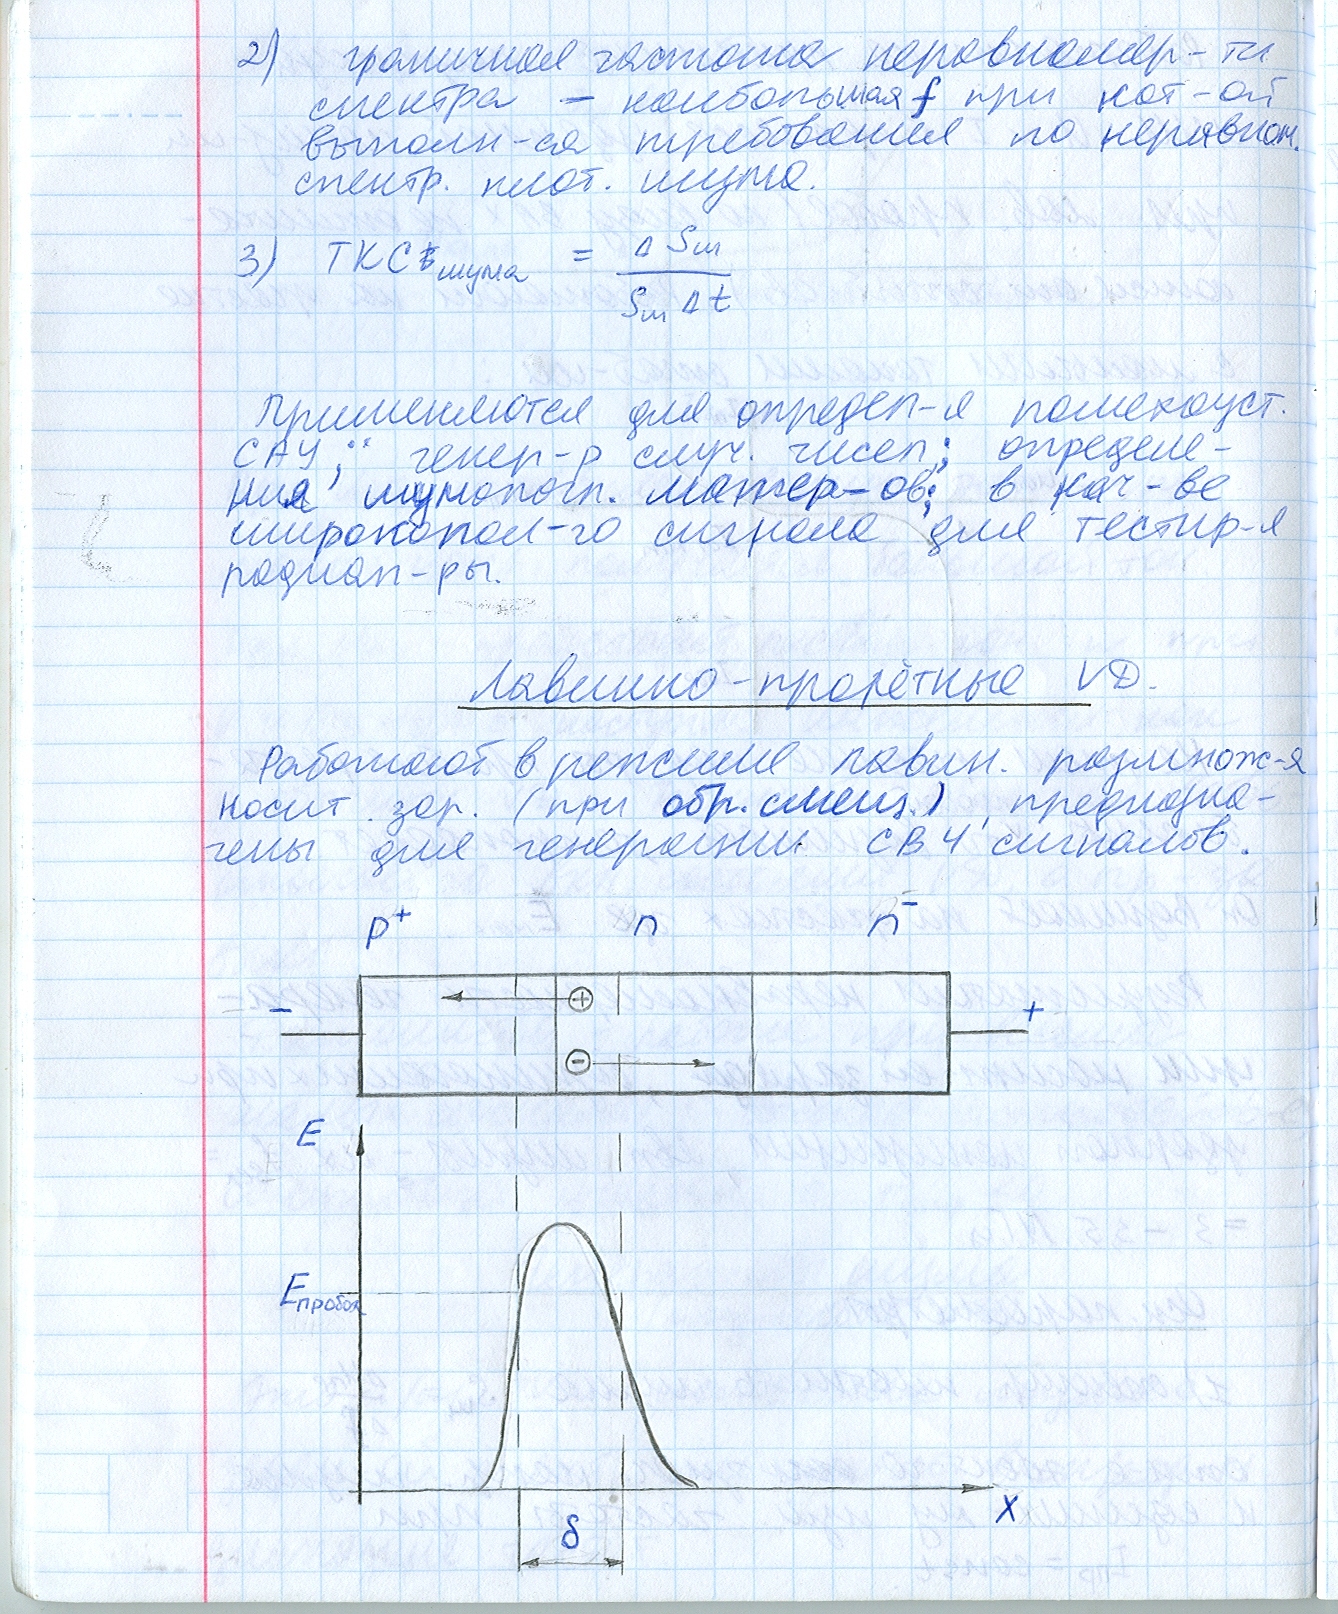 2) граничная частота неравномер-ти
спектра – наибольшая f при кот-ой
выполн-ся требования по неравном.
спектр. плот. шума.
3) ТКС шума = Δ Sш / Sш Δt
Применяются для определ-я помехоуст.
САУ; генер-р случ. чисел; определе-
ния шумопогл. матер-ов; в кач-ве
широкопол-го сигнала для тестир-я
радиап-ры.
Лавинно-пролётные VD.
Работают в режиме лавин. размнож-я
носит. зар. (при обр. смещ.), предназна-
чены для генерации СВЧ сигналов.
p⁺ n n⁻
- + +
-
E
Eпробоя
X
δ